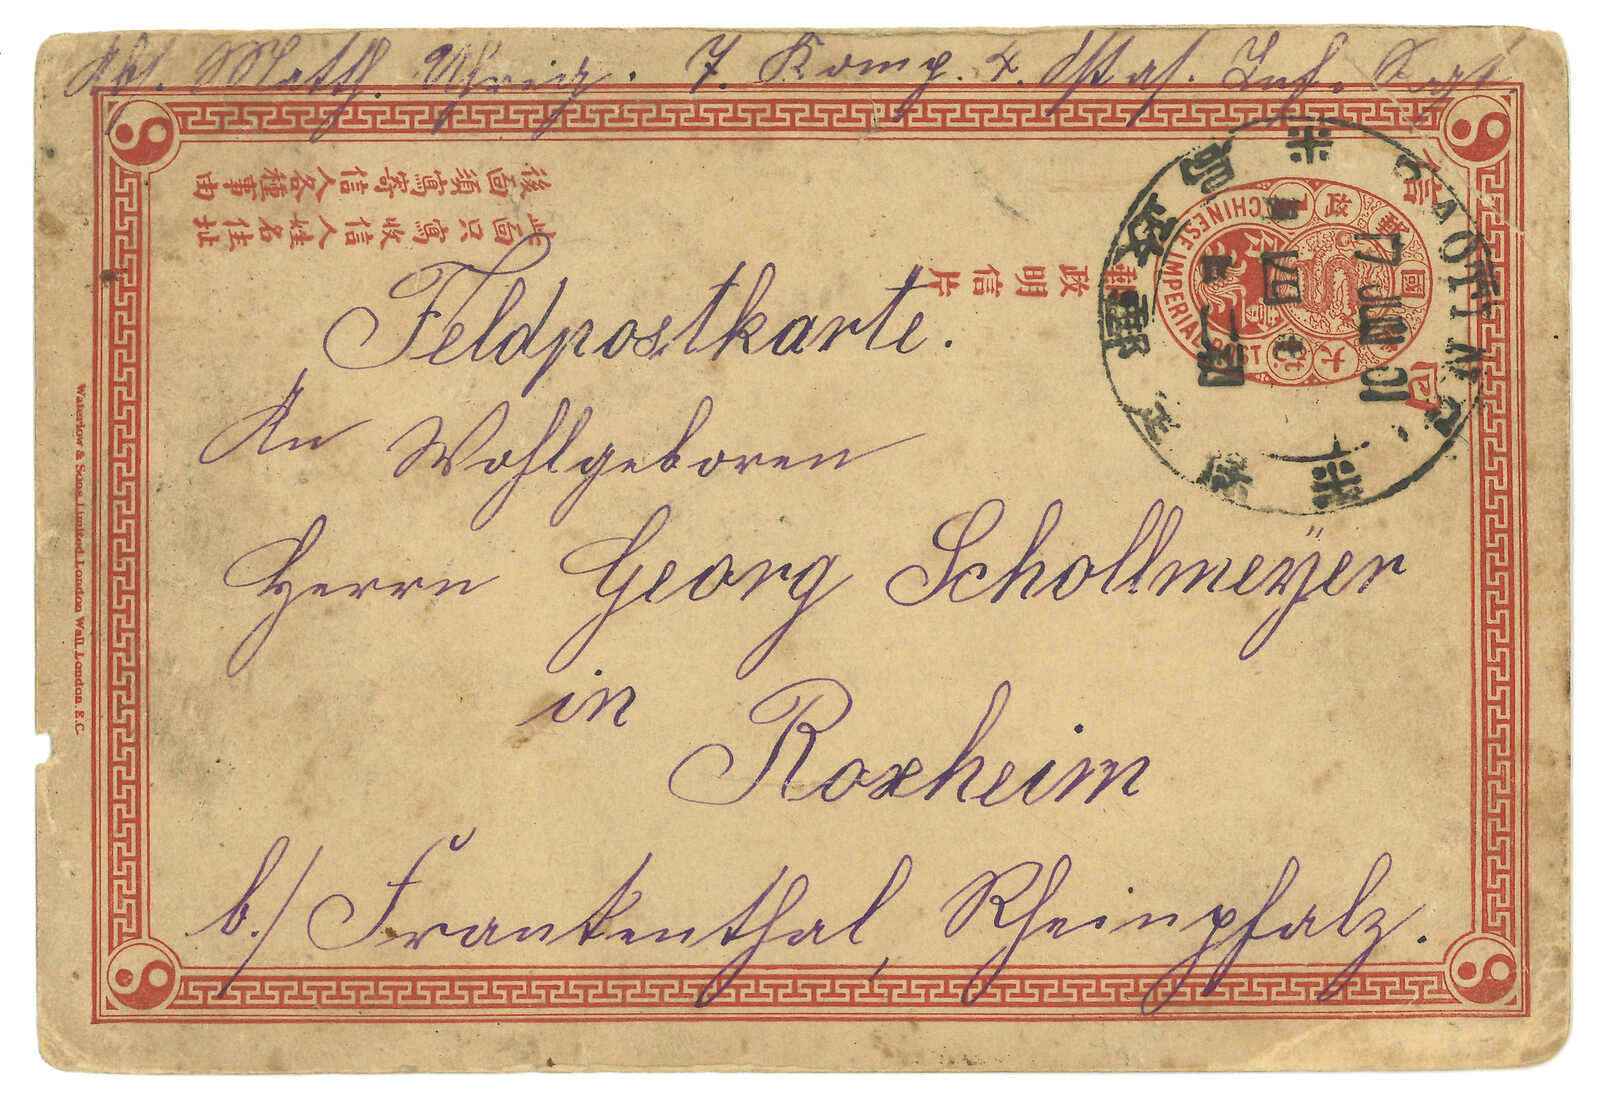 Abs. Math. 7. Komp. 4. Ostas. Inf. Regt.
後面須寫寄信人各種事由
此面只寫收信人姓名住址
郵政明信片
CHINESE IMPERIAL POST
大
國
郵
政
PAOTING
17 JUN 01
郵政局
Feldpostkarte.
An Wohlgeboren
Herrn Georg Schollmeyer
in Roxheim
b./ Frankenthal, Rheinpfalz.
Waterlow & Sons Limited. London Wall. London. E.C.